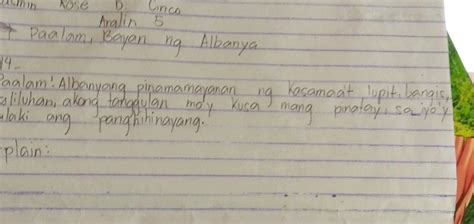 Rose D. Cinco
Aralin 5
Paalam, Bayan ng Albanya
14-
Paalam! Albanyang pinamamayanan ng kasamaa't lupit, bangis,
kaliluhan, akong tanggulan mo'y kusa mang pinatay, sa iyo'y
malaki ang panghihinayang.
plain: